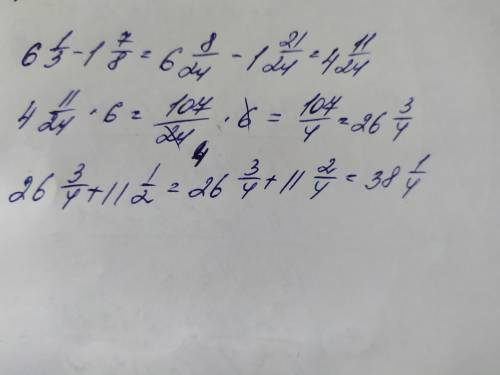 6 1/3 - 1 7/8 = 6 8/24 - 1 21/24 = 4 11/24
4 11/24 · 6 = 107/24 · 6 = 107/4 = 26 3/4
4
26 3/4 + 11 1/2 = 26 3/4 + 11 2/4 = 38 1/4